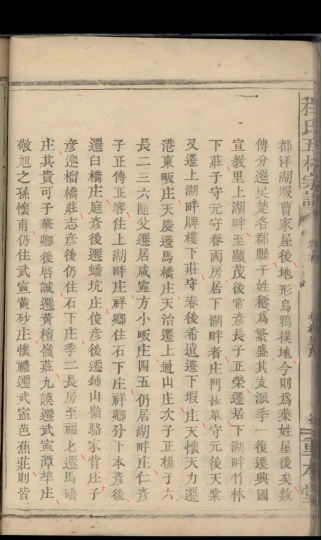 都洋湖瑕曹家屋後地形烏鴉樸地今則為葉姓屋後矣敖
傳分遷吳楚各郡縣子姓穗為繁盛其支派季一復遷興國
宣教里上湖畔至顯茂後常彥長子正榮遷居下湖畔竹林
下庄子守元守春兩房居下湖畔者庄門首眾守元後天葉
又遷上湖畔牌樓下庄守春後希遠遷下瑕庄天懷天力遷
港東畈庄天慶遷馬橋庄天治遷上遊山庄次子正楊子六
長二三六隨父遷居咸寧方小畈庄四五仍居湖畔庄仁彥
子正傳正客住上湖畔庄祥鄉住石下庄祥鄉分下本彥後
遷白橋庄庭彥後遷蟠坑庄俊彥後遷鍾山嶺駱家背庄子
彥遷榴橋莊志彥後仍住石下庄季二長房至福七遷馬橋
庄其貴可子華卿後啟誠遷黃檀嶺莊九謨遷武寧潭埠庄
敬旭之孫懷甫仍住武寧黃砂庄懷禮遷武寧芭蕉莊則皆
程氏五林宗譜